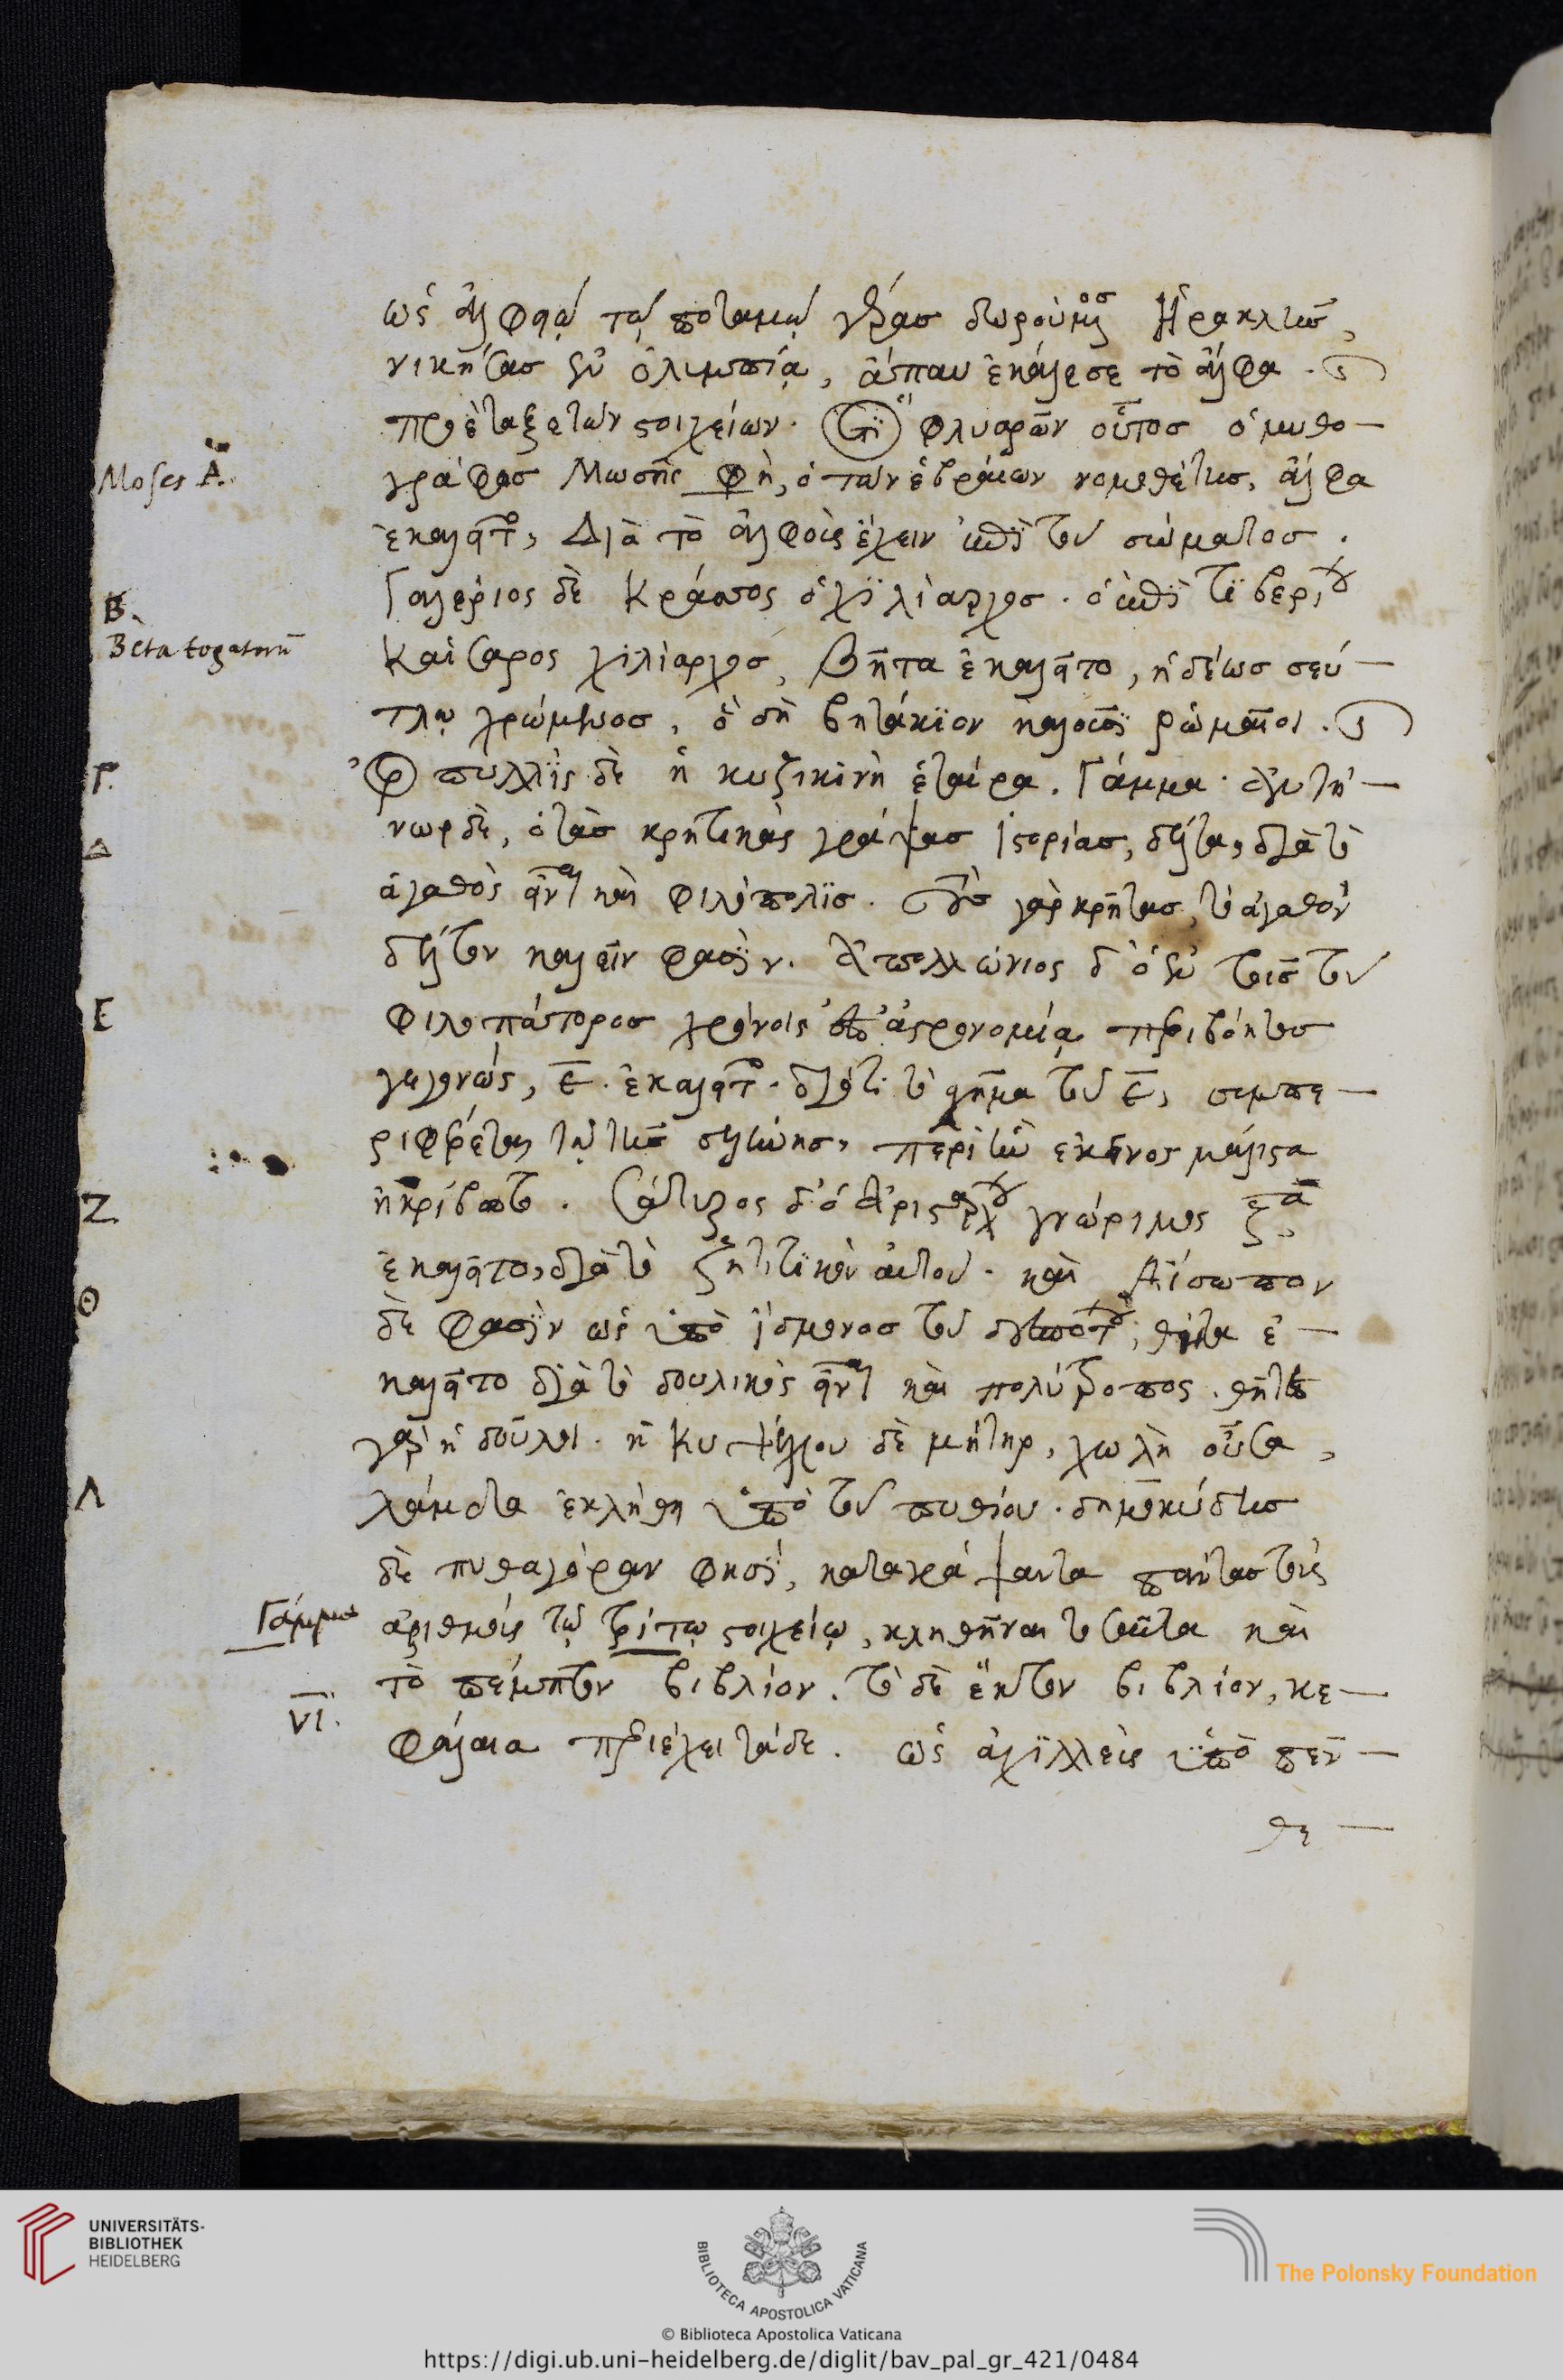 ὡς ἀλφειῷ τῷ ποταμῷ γέρας δωρούμενος Ἡρακλῆς,
νικήσας ἐν ὀλιμπία, ἀπ αυ ἐκάλεσε τὸ ἄλφα.
προέταξε τῶν στοιχείων. Ὅτι φλυαρῶν οὗτος ὁ μυθο-
γράφος Μωσῆς φη, ὁ τῶν ἑβραίων νομοθέτης, ἄλφα
ἐκαλεῖτο, Διὰ τὸ ἀλφοὺς ἔχειν ἐπὶ τοῦ σώματος.
Γαλέριος δὲ Κράσσος ὁ χιλίαρχος. ὁ ἐπὶ τιβερίου
Καίσαρος χιλίαρχος, βῆτα ἐκαλεῖτο, ἡδέως σεύ-
τλῳ χρώμενος, ὃ δὴ βητάκιον καλοῦσι ῥωμαῖοι.
πυλλὶς δὲ ἡ κυζικινὴ ἑταίρα. Γάμμα. ἀντή-
νωρ δὲ, ὁ τὰς κρητικὰς γράψας ἱστορίας, δέλτα, διὰ τὸ
ἀγαθὸς εἶναι καὶ φιλόπολις. τοὺς γὰρ κρῆτας, τὸ ἀγαθὸν
δέλτον καλεῖν φασὶν. Ἀπολλώνιος δ' ὁ ἐν τοῖς τοῦ
Φιλοπάτορος χρόνοις ἐπ' ἀστρονομία περιβόητος
γεγονώς, ε. ἐκαλεῖτο. διότι τὸ σχῆμα τοῦ ε, συμπε-
ριφέρεται τῷ τῆς σελήνης, περὶ ἣν ἐκεῖνος μάλιστα
ἠκρίβωτο. Σάτυρος δ' ὁ Ἀριστάρχου γνώριμος ζτα
ἐκαλεῖτο, διὰ τὸ ζητιτικὸν αὐτοῦ. καὶ Αἴσωπον
δὲ φασὶν ὡς ὑπὸ ἴδμονος τοῦ δεσπότου, θῆτα ἐ-
καλεῖτο διὰ τὸ δουλικὸς εἶναι καὶ πολύτροπος. θῆτες
γὰρ οἱ δοῦλοι. ἡ Κυψέλου δὲ μήτηρ, χωλὴ οὖσα,
λάμβδα ἐκλήθη ὑπὸ τοῦ πυθίου. δημοκύδης
δὲ πυθαγόραν φησὶ, καταγράψαντα πάντας τοὺς
ἀριθμοὺς τῷ τρίτῳ στοιχείῳ, κληθῆναι τοῦτα καὶ
τὸ πέμπτον βιβλίον. τὸ δὲ ἕκτον βιβλίον, κε-
φάλαια περιέχει τάδε. ὡς ἀχιλλεὺς ὑπὸ πεν-
θε-
Moses Ἀ.
Β.
Beta togatorū
Γ.
Δ
Ε
Ζ
Θ
Λ
Γάμμα
VI.
UNIVERSITÄTS-
BIBLIOTHEK
HEIDELBERG
BIBLIOTECA APOSTOLICA VATICANA
The Polonsky Foundation
© Biblioteca Apostolica Vaticana
https://digi.ub.uni-heidelberg.de/diglit/bav_pal_gr_421/0484